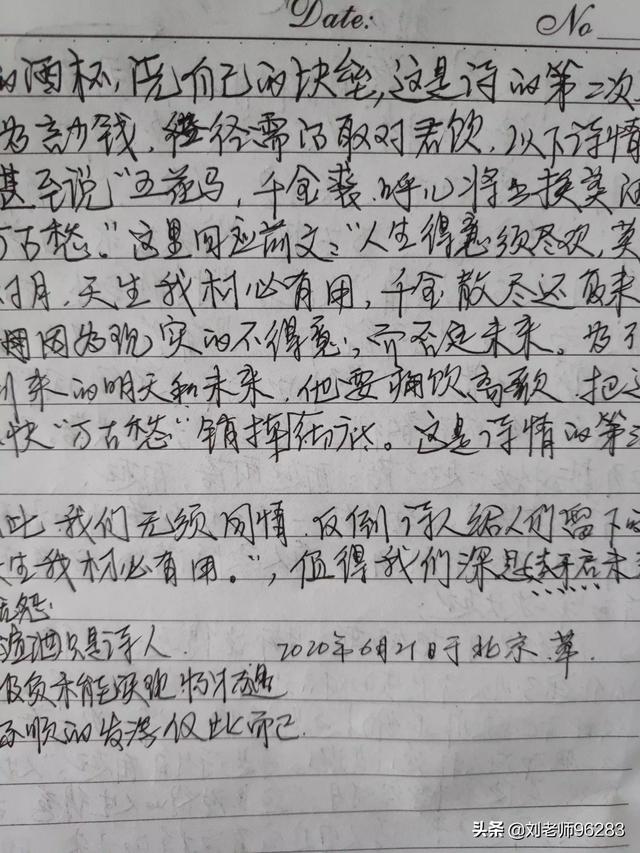 Date: No
的酒杯，浇自己的块垒，这是诗的第二次
为言少钱，径须沽取对君饮，以下诗情
甚至说“五花马，千金裘，呼儿将出换美酒
万古愁。”这里回应前文：“人生得意须尽欢，莫
对月，天生我材必有用，千金散尽还复来
因为现实的不得意，而否定未来。为了
到来的明天和未来，他要痛饮高歌，把这
快“万古愁”销掉。这是诗情的第三
此我们无须同情，反倒诗人给人们留下的
天生我材必有用。”，值得我们深思
酒只是诗人 2020年6月21日于北京.草.
抱负未能实现
不顺的发泄仅此而已
头条 @刘老师96283